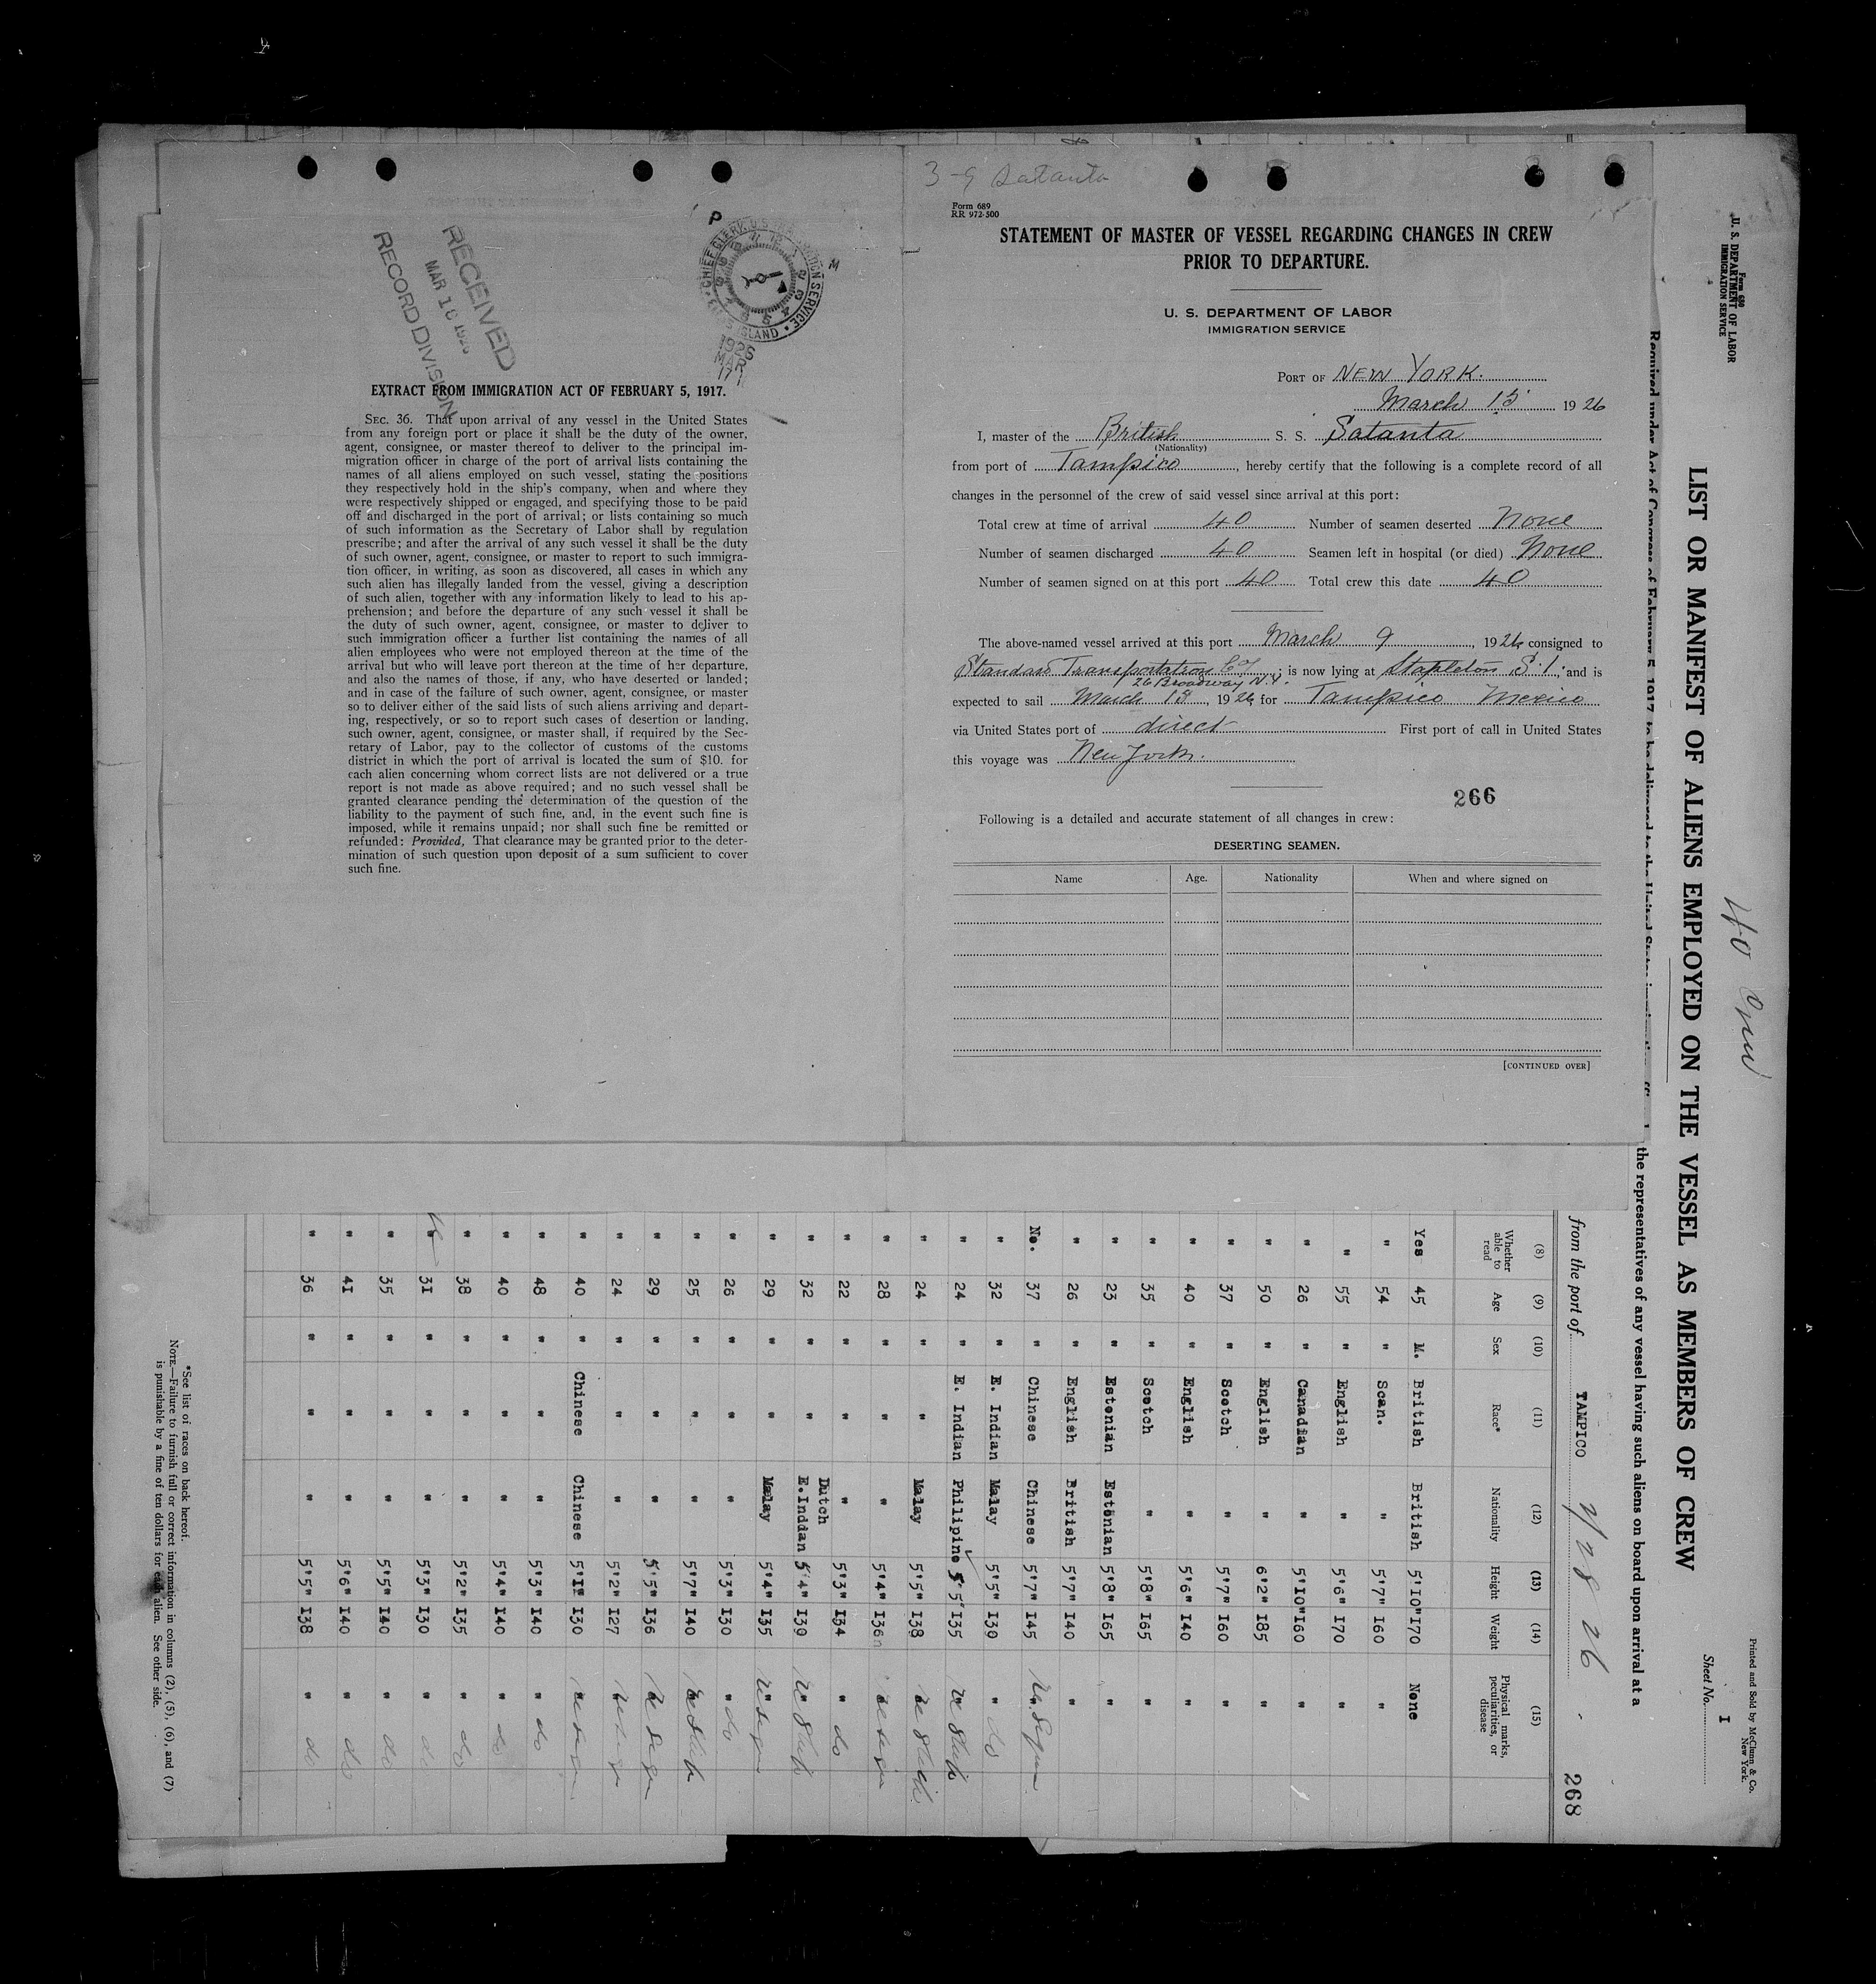 RECEIVED
MAR 1 1926
RECORD DIVISION
P
M
CHIEF CLERK, U.S. IMMIGRATION SERVICE • ELLIS ISLAND •
1926
MAR
17
EXTRACT FROM IMMIGRATION ACT OF FEBRUARY 5, 1917.
SEC. 36. That upon arrival of any vessel in the United States
from any foreign port or place it shall be the duty of the owner,
agent, consignee, or master thereof to deliver to the principal im-
migration officer in charge of the port of arrival lists containing the
names of all aliens employed on such vessel, stating the positions
they respectively hold in the ship's company, when and where they
were respectively shipped or engaged, and specifying those to be paid
off and discharged in the port of arrival; or lists containing so much
of such information as the Secretary of Labor shall by regulation
prescribe; and after the arrival of any such vessel it shall be the duty
of such owner, agent, consignee, or master to report to such immigra-
tion officer, in writing, as soon as discovered, all cases in which any
such alien has illegally landed from the vessel, giving a description
of such alien, together with any information likely to lead to his ap-
prehension; and before the departure of any such vessel it shall be
the duty of such owner, agent, consignee, or master to deliver to
such immigration officer a further list containing the names of all
alien employees who were not employed thereon at the time of the
arrival but who will leave port thereon at the time of her departure,
and also the names of those, if any, who have deserted or landed;
and in case of the failure of such owner, agent, consignee, or master
so to deliver either of the said lists of such aliens arriving and depart-
ing, respectively, or so to report such cases of desertion or landing,
such owner, agent, consignee, or master shall, if required by the Sec-
retary of Labor, pay to the collector of customs of the customs
district in which the port of arrival is located the sum of $10. for
each alien concerning whom correct lists are not delivered or a true
report is not made as above required; and no such vessel shall be
granted clearance pending the determination of the question of the
liability to the payment of such fine, and, in the event such fine is
imposed, while it remains unpaid; nor shall such fine be remitted or
refunded: Provided, That clearance may be granted prior to the deter-
mination of such question upon deposit of a sum sufficient to cover
such fine.
3-9 Satanta
Form 689
RR 972-500
STATEMENT OF MASTER OF VESSEL REGARDING CHANGES IN CREW
PRIOR TO DEPARTURE.
U. S. DEPARTMENT OF LABOR
IMMIGRATION SERVICE
PORT OF NEW YORK.
March 15 1926
I, master of the British S. S. Satanta
(Nationality)
from port of Tampico, hereby certify that the following is a complete record of all
changes in the personnel of the crew of said vessel since arrival at this port:
Total crew at time of arrival 40 Number of seamen deserted None
Number of seamen discharged 40 Seamen left in hospital (or died) None
Number of seamen signed on at this port 40 Total crew this date 40
The above-named vessel arrived at this port March 9, 1926 consigned to
Standard Transportation Co; is now lying at Stapleton S.I.; and is
26 Broadway N.Y.
expected to sail March 15, 1926 for Tampico Mexico
via United States port of direct First port of call in United States
this voyage was New York.
266
Following is a detailed and accurate statement of all changes in crew:
DESERTING SEAMEN.
Name Age. Nationality When and where signed on
[CONTINUED OVER]
Form 680
U. S. DEPARTMENT OF LABOR
IMMIGRATION SERVICE
40 Crew
Printed and Sold by McClunn & Co.
New York.
Sheet No. I
LIST OR MANIFEST OF ALIENS EMPLOYED ON THE VESSEL AS MEMBERS OF CREW
Required under Act of Congress of February 5, 1917, to be delivered to the United States immigration
the representatives of any vessel having such aliens on board upon arrival at a
from the port of TAMPICO 2/28 26 268
(8) (9) (10) (11) (12) (13) (14) (15)
Whether able to read Age Sex Race* Nationality Height Weight Physical marks, peculiarities, or disease
Yes 45 M. British British 5'10" 170 None
" 54 " Scan. " 5'7" 160 "
" 55 " English " 5'6" 170 "
" 26 " Canadian " 5'10" 160 "
" 50 " English " 6'2" 185 "
" 37 " Scotch " 5'7" 160 "
" 40 " English " 5'6" 140 "
" 35 " Scotch " 5'8" 165 "
" 23 " Estonian Estonian 5'8" 165 "
" 26 " English British 5'7" 140 "
No. 37 " Chinese Chinese 5'7" 145
" 32 " E. Indian Malay 5'5" 139 " do
" 24 " E. Indian Philipino 5'5" 135
" 24 " " Malay 5'5" 138
" 28 " " " 5'4" 136
" 22 " " " 5'3" 134 " do
" 32 " " Dutch E.Indian 5'4" 139
" 29 " " Malay 5'4" 135
" 26 " " " 5'3" 130 " do
" 25 " " " 5'7" 140
" 29 " " " 5'5" 136
" 24 " " " 5'2" 127
" 40 " Chinese Chinese 5'1" 130
" 48 " " " 5'3" 140 " do
" 40 " " " 5'4" 140 " do
" 38 " " " 5'2" 135 " do
" 31 " " " 5'3" 130 " do
" 35 " " " 5'5" 140 " do
" 41 " " " 5'6" 140 " do
" 36 " " " 5'5" 138 " do
*See list of races on back hereof.
NOTE.—Failure to furnish full or correct information in columns (2), (5), (6), and (7)
is punishable by a fine of ten dollars for each alien. See other side.